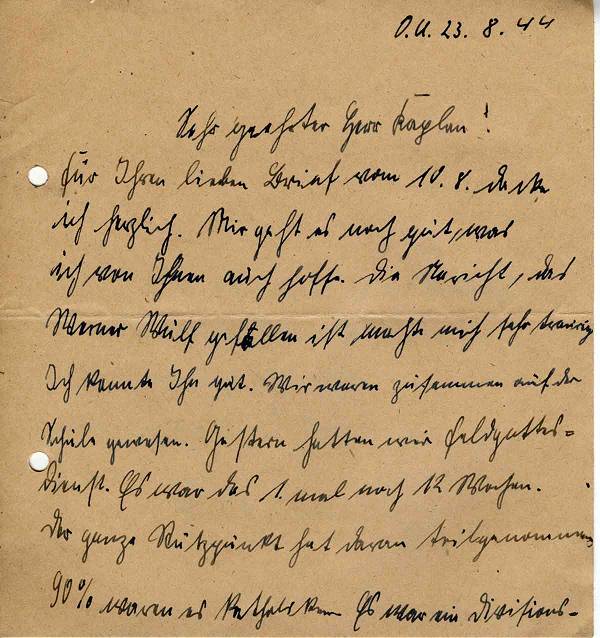 O.U. 23. 8. 44
Sehr geehrter Herr Kaplan!
Für Ihren lieben Brief vom 10. 8. danke
ich herzlich. Mir geht es noch gut, was
ich von Ihnen auch hoffe. Die Naricht, das
Werner Wulf gefallen ist machte mich sehr traurig
Ich kannte Ihn gut. Wir waren zusammen auf der
Schule gewesen. Gestern hatten wir Feldgottes=
dienst. Es war das 1. mal nach 12 Wochen.
Der ganze Stützpunkt hat daran teilgenommen
90% waren es Katholiken Es war ein Divisions=